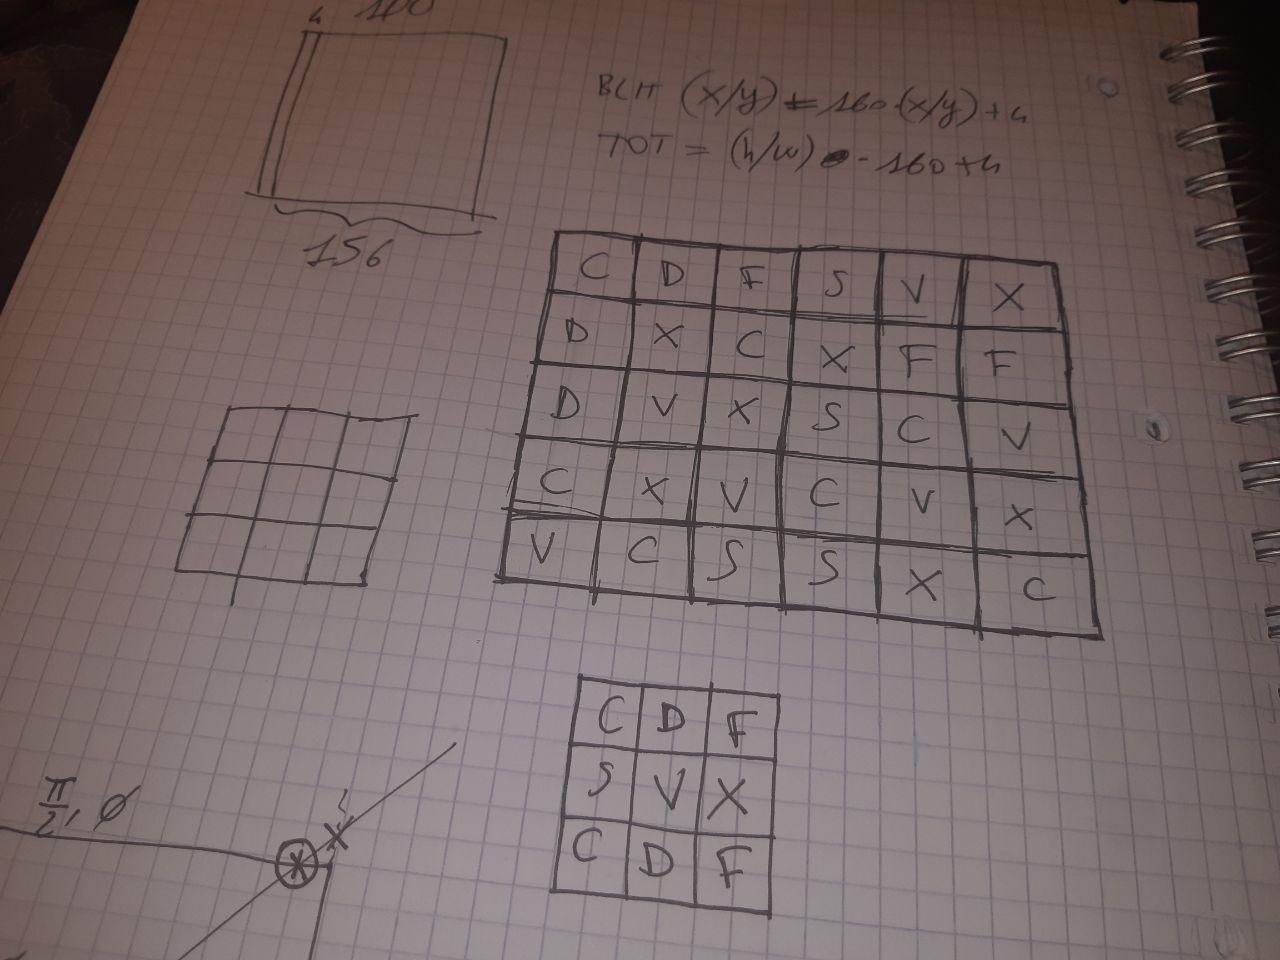 4 160
BLIT (x/y) = 160·(x/y)+4
TOT = (h/w) · 160+4
156
C D F S V X
D X C X F F
D V X S C V
C X V C V X
V C S S X C
C D F
S V X
C D F
π/2, ∅